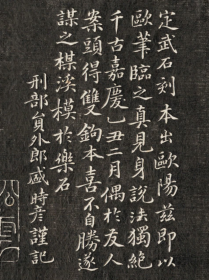 定武石刻本出歐陽茲即以
歐筆臨之真見身說法獨絕
千古嘉慶乙丑二月偶於友人
案頭得雙鈎本喜不自勝遂
謀之棋溪模於樂石
刑部員外郎戚時彦謹記